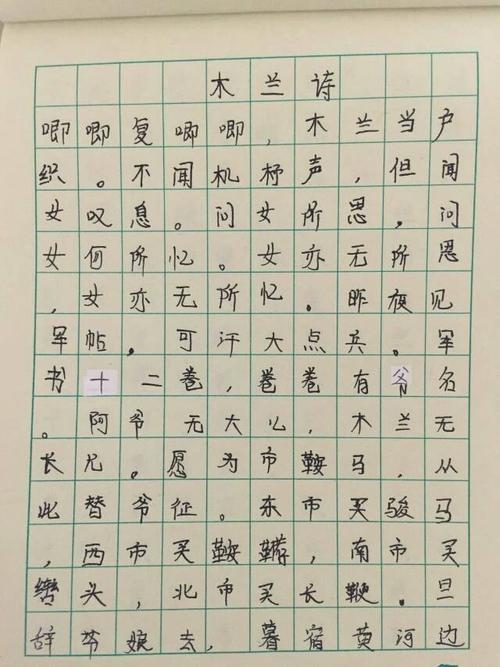 木兰诗
唧唧复唧唧,木兰当户
织。不闻机杼声,但闻
女叹息。问女所思,问
女何所忆。女亦无所思
,女亦无所忆。昨夜见
军帖,可汗大点兵。军
书十二卷,卷卷有爷名
。阿爷无大儿,木兰无
长兄。愿为市鞍马,从
此替爷征。东市买骏马
,西市买鞍鞯,南市买
辔头,北市买长鞭。旦
辞爷娘去,暮宿黄河边